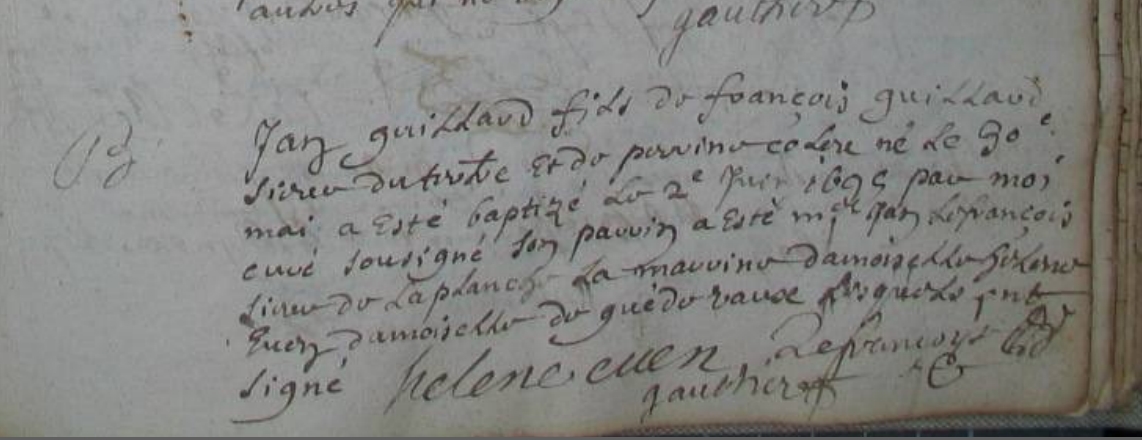 autres qui ne
gauthier
Jan guillard fils de françois guillard
sieur du tertre et de perrine colere né le 30e
mai a esté baptizé le 2e Juin 1695 par moi
curé sousigné son parrin a esté Jan Lefrançois
sieur de laplanche la marrine damoiselle helene
Euen damoiselle de guédevaux lesquels ont
signé helene euen Lefrancoys
gauthier